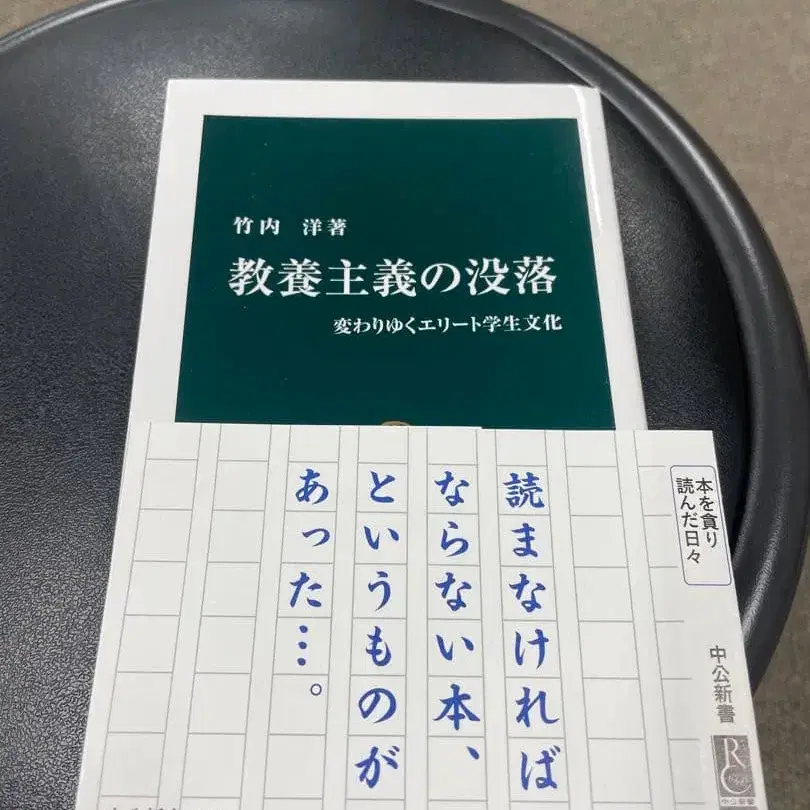 竹内 洋著
教養主義の没落
変わりゆくエリート学生文化
本を貪り
読んだ日々
読まなければ
ならない本、
というものが
あった…。
中公新書
中公新書